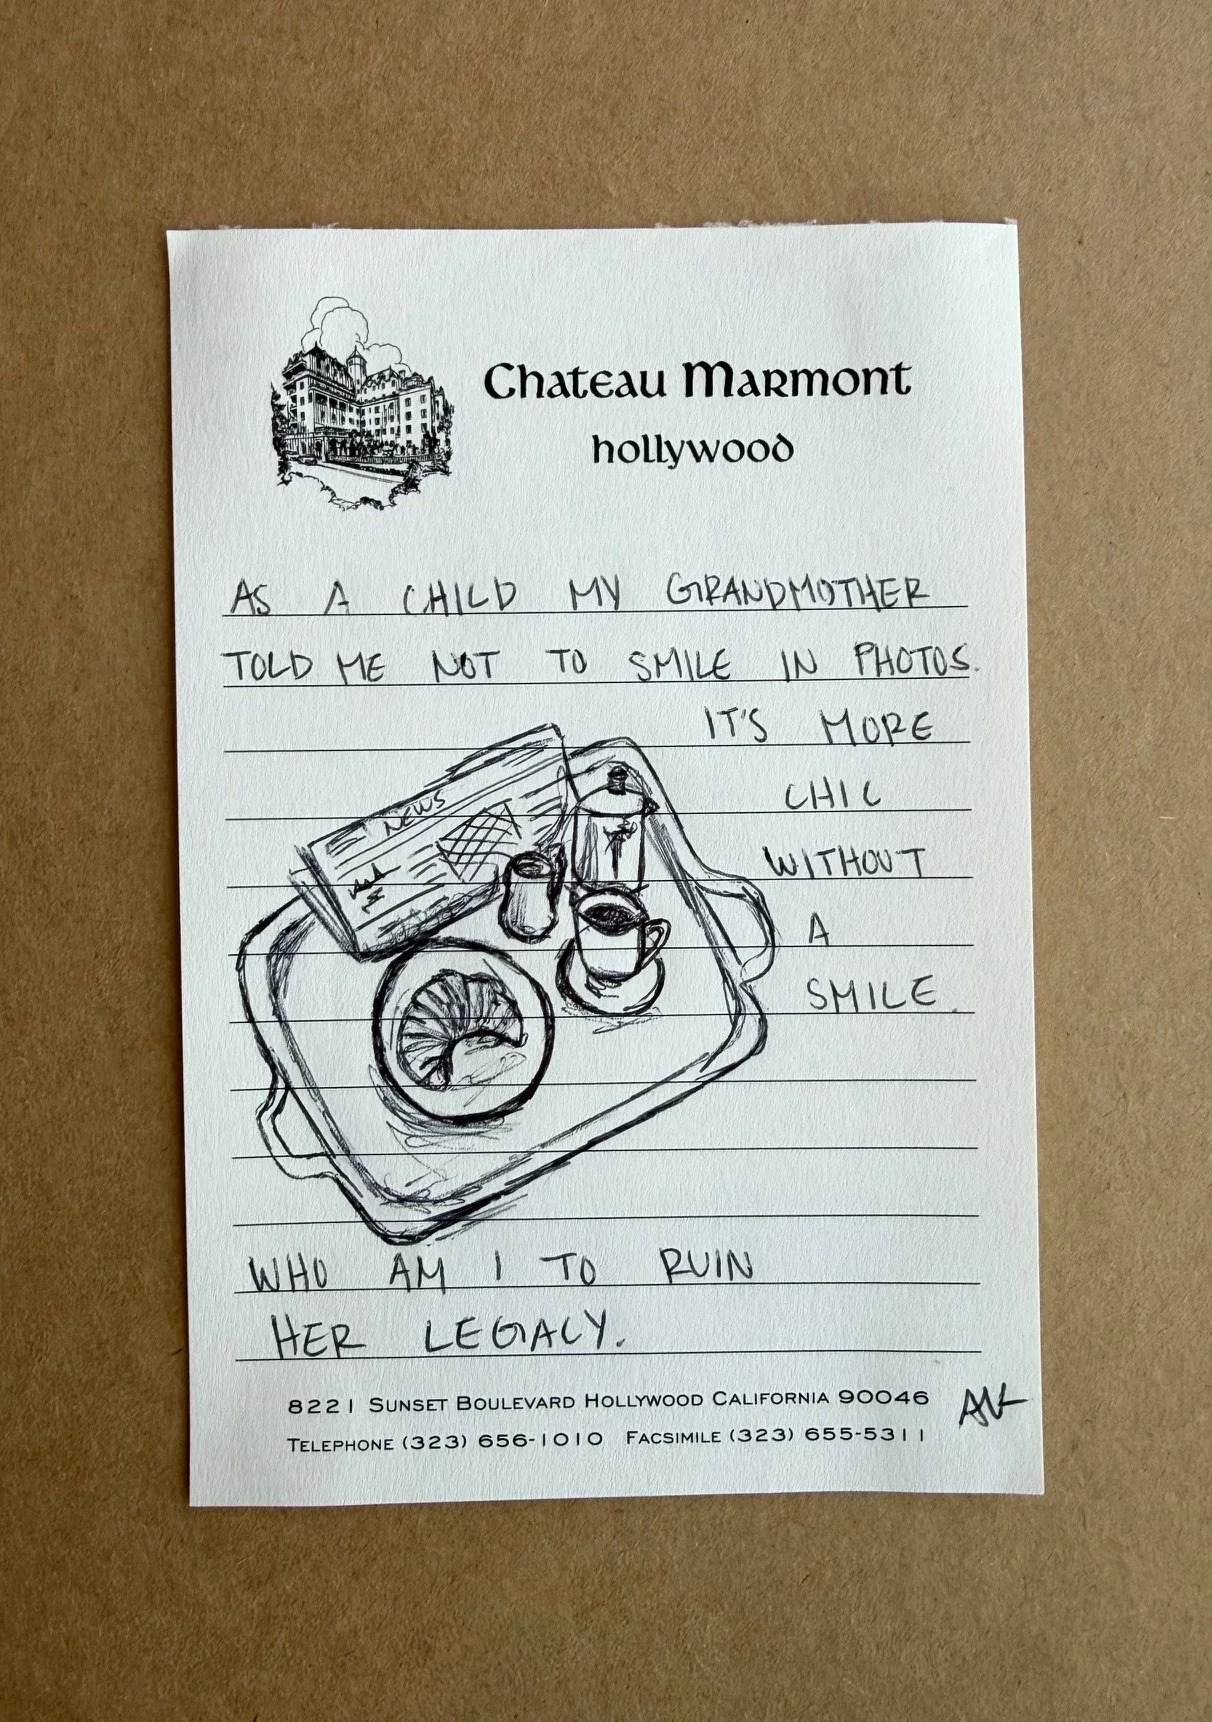 Chateau Marmont
hollywood
AS A CHILD MY GRANDMOTHER
TOLD ME NOT TO SMILE IN PHOTOS.
IT'S MORE
CHIC
WITHOUT
A
SMILE.
NEWS
WHO AM I TO RUIN
HER LEGACY.
8221 SUNSET BOULEVARD HOLLYWOOD CALIFORNIA 90046
TELEPHONE (323) 656-1010 FACSIMILE (323) 655-5311